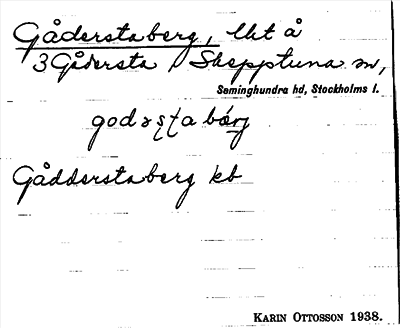 Gåderstaberg, lht å
3 Gådersta Skepptuna sn,
Seminghundra hd, Stockholms l.
Gådderstaberg kb
KARIN OTTOSSON 1938.